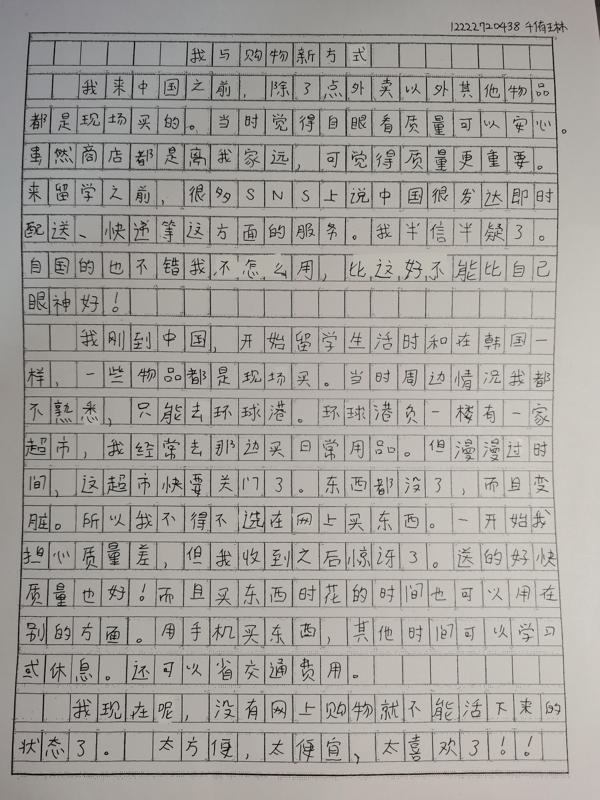 12222720438 千侑玗林
我与购物新方式
我来中国之前，除了点外卖以外其他物品
都是现场买的。当时觉得自眼看质量可以安心。
虽然商店都是离我家远，可觉得质量更重要。
来留学之前，很多SNS上说中国很发达即时
配送、快递等这方面的服务。我半信半疑了。
自国的也不错我不怎么用，比这好不能比自己
眼神好！
我刚到中国，开始留学生活时和在韩国一
样，一些物品都是现场买。当时周边情况我都
不熟悉，只能去环球港。环球港负一楼有一家
超市，我经常去那边买日常用品。但漫漫过时
间，这超市快要关门了。东西都没了，而且变
脏。所以我不得不选在网上买东西。一开始我
担心质量差，但我收到之后惊讶了。送的好快
质量也好！而且买东西时花的时间也可以用在
别的方面。用手机买东西，其他时间可以学习
或休息。还可以省交通费用。
我现在呢，没有网上购物就不能活下来的
状态了。太方便，太便宜，太喜欢了！！